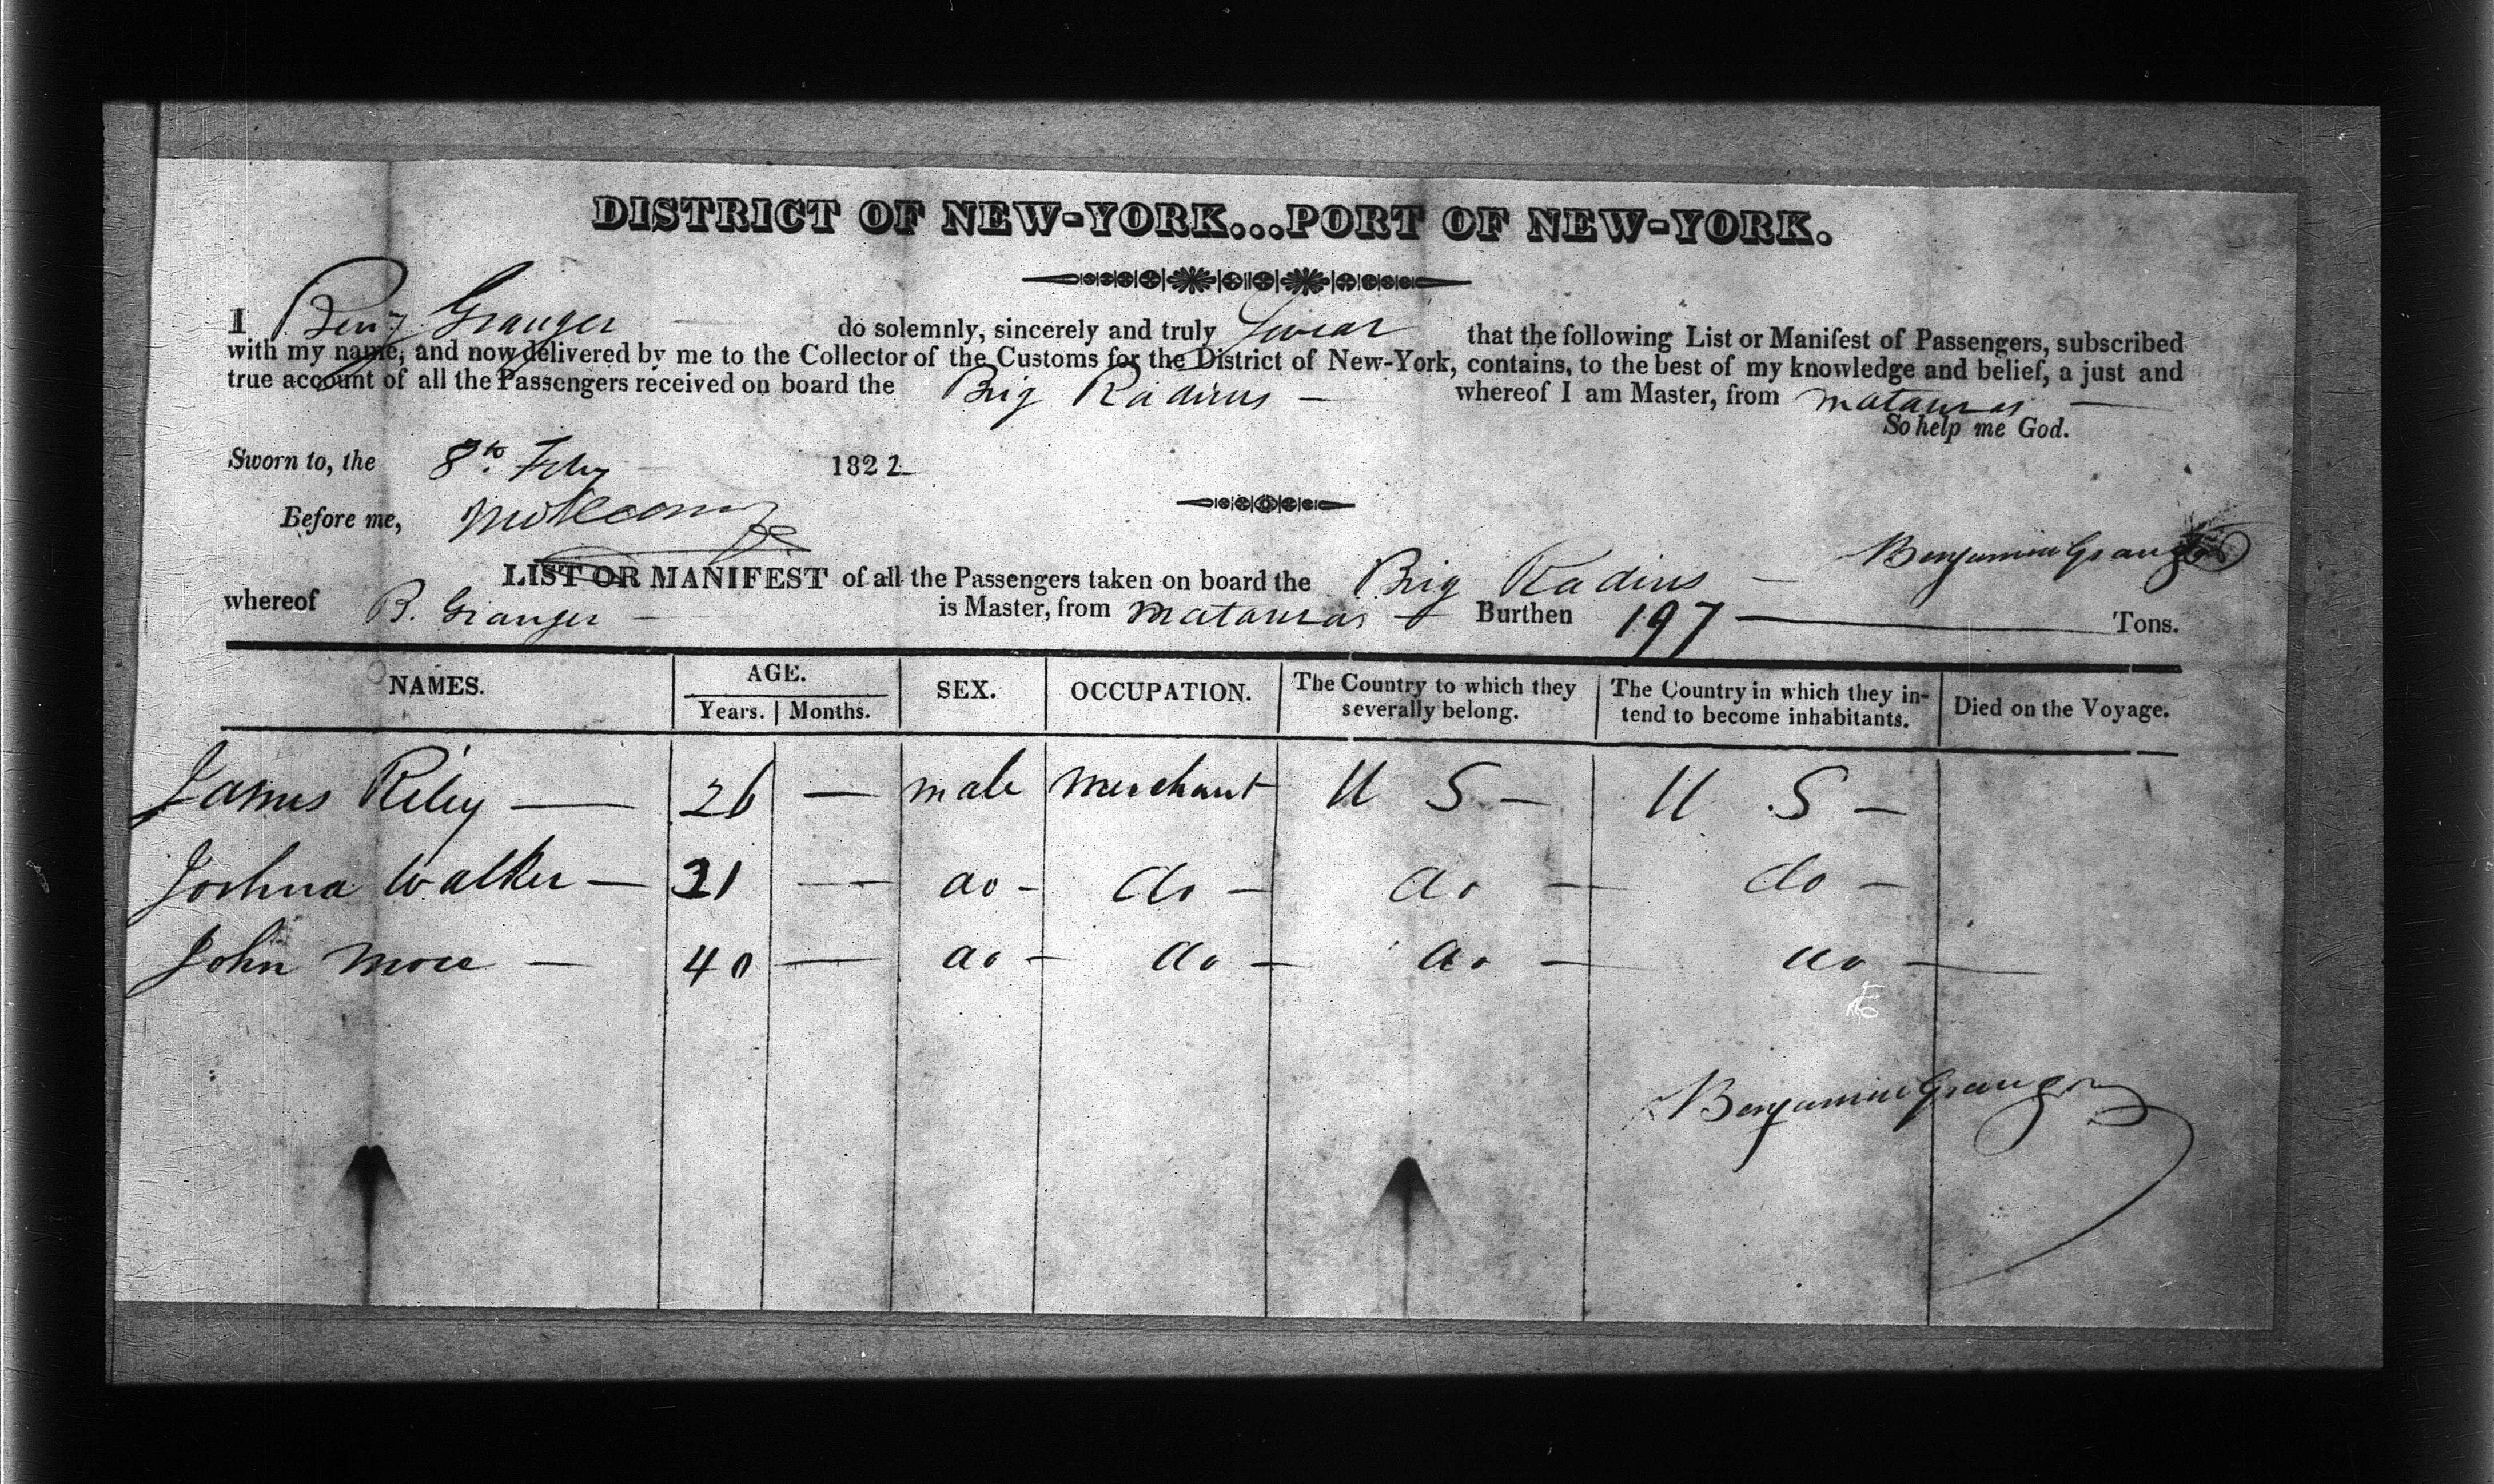 DISTRICT OF NEW-YORK...PORT OF NEW-YORK.
I Benj Granger do solemnly, sincerely and truly Swear that the following List or Manifest of Passengers, subscribed
with my name, and now delivered by me to the Collector of the Customs for the District of New-York, contains, to the best of my knowledge and belief, a just and
true account of all the Passengers received on board the Brig Radius — whereof I am Master, from Matanzas —
So help me God.
Sworn to, the 8th Feby 1822
Before me,
Benjamin Granger
LIST OR MANIFEST of all the Passengers taken on board the Brig Radius —
whereof B. Granger — is Master, from Matanzas — Burthen 197 — Tons.
NAMES. AGE. SEX. OCCUPATION. The Country to which they severally belong. The Country in which they intend to become inhabitants. Died on the Voyage.
Years. Months.
James Riley — 26 — male merchant U S — U S —
Joshua Walker — 31 — do — do — do — do —
John More — 40 — do — do — do — do —
Benjamin Granger